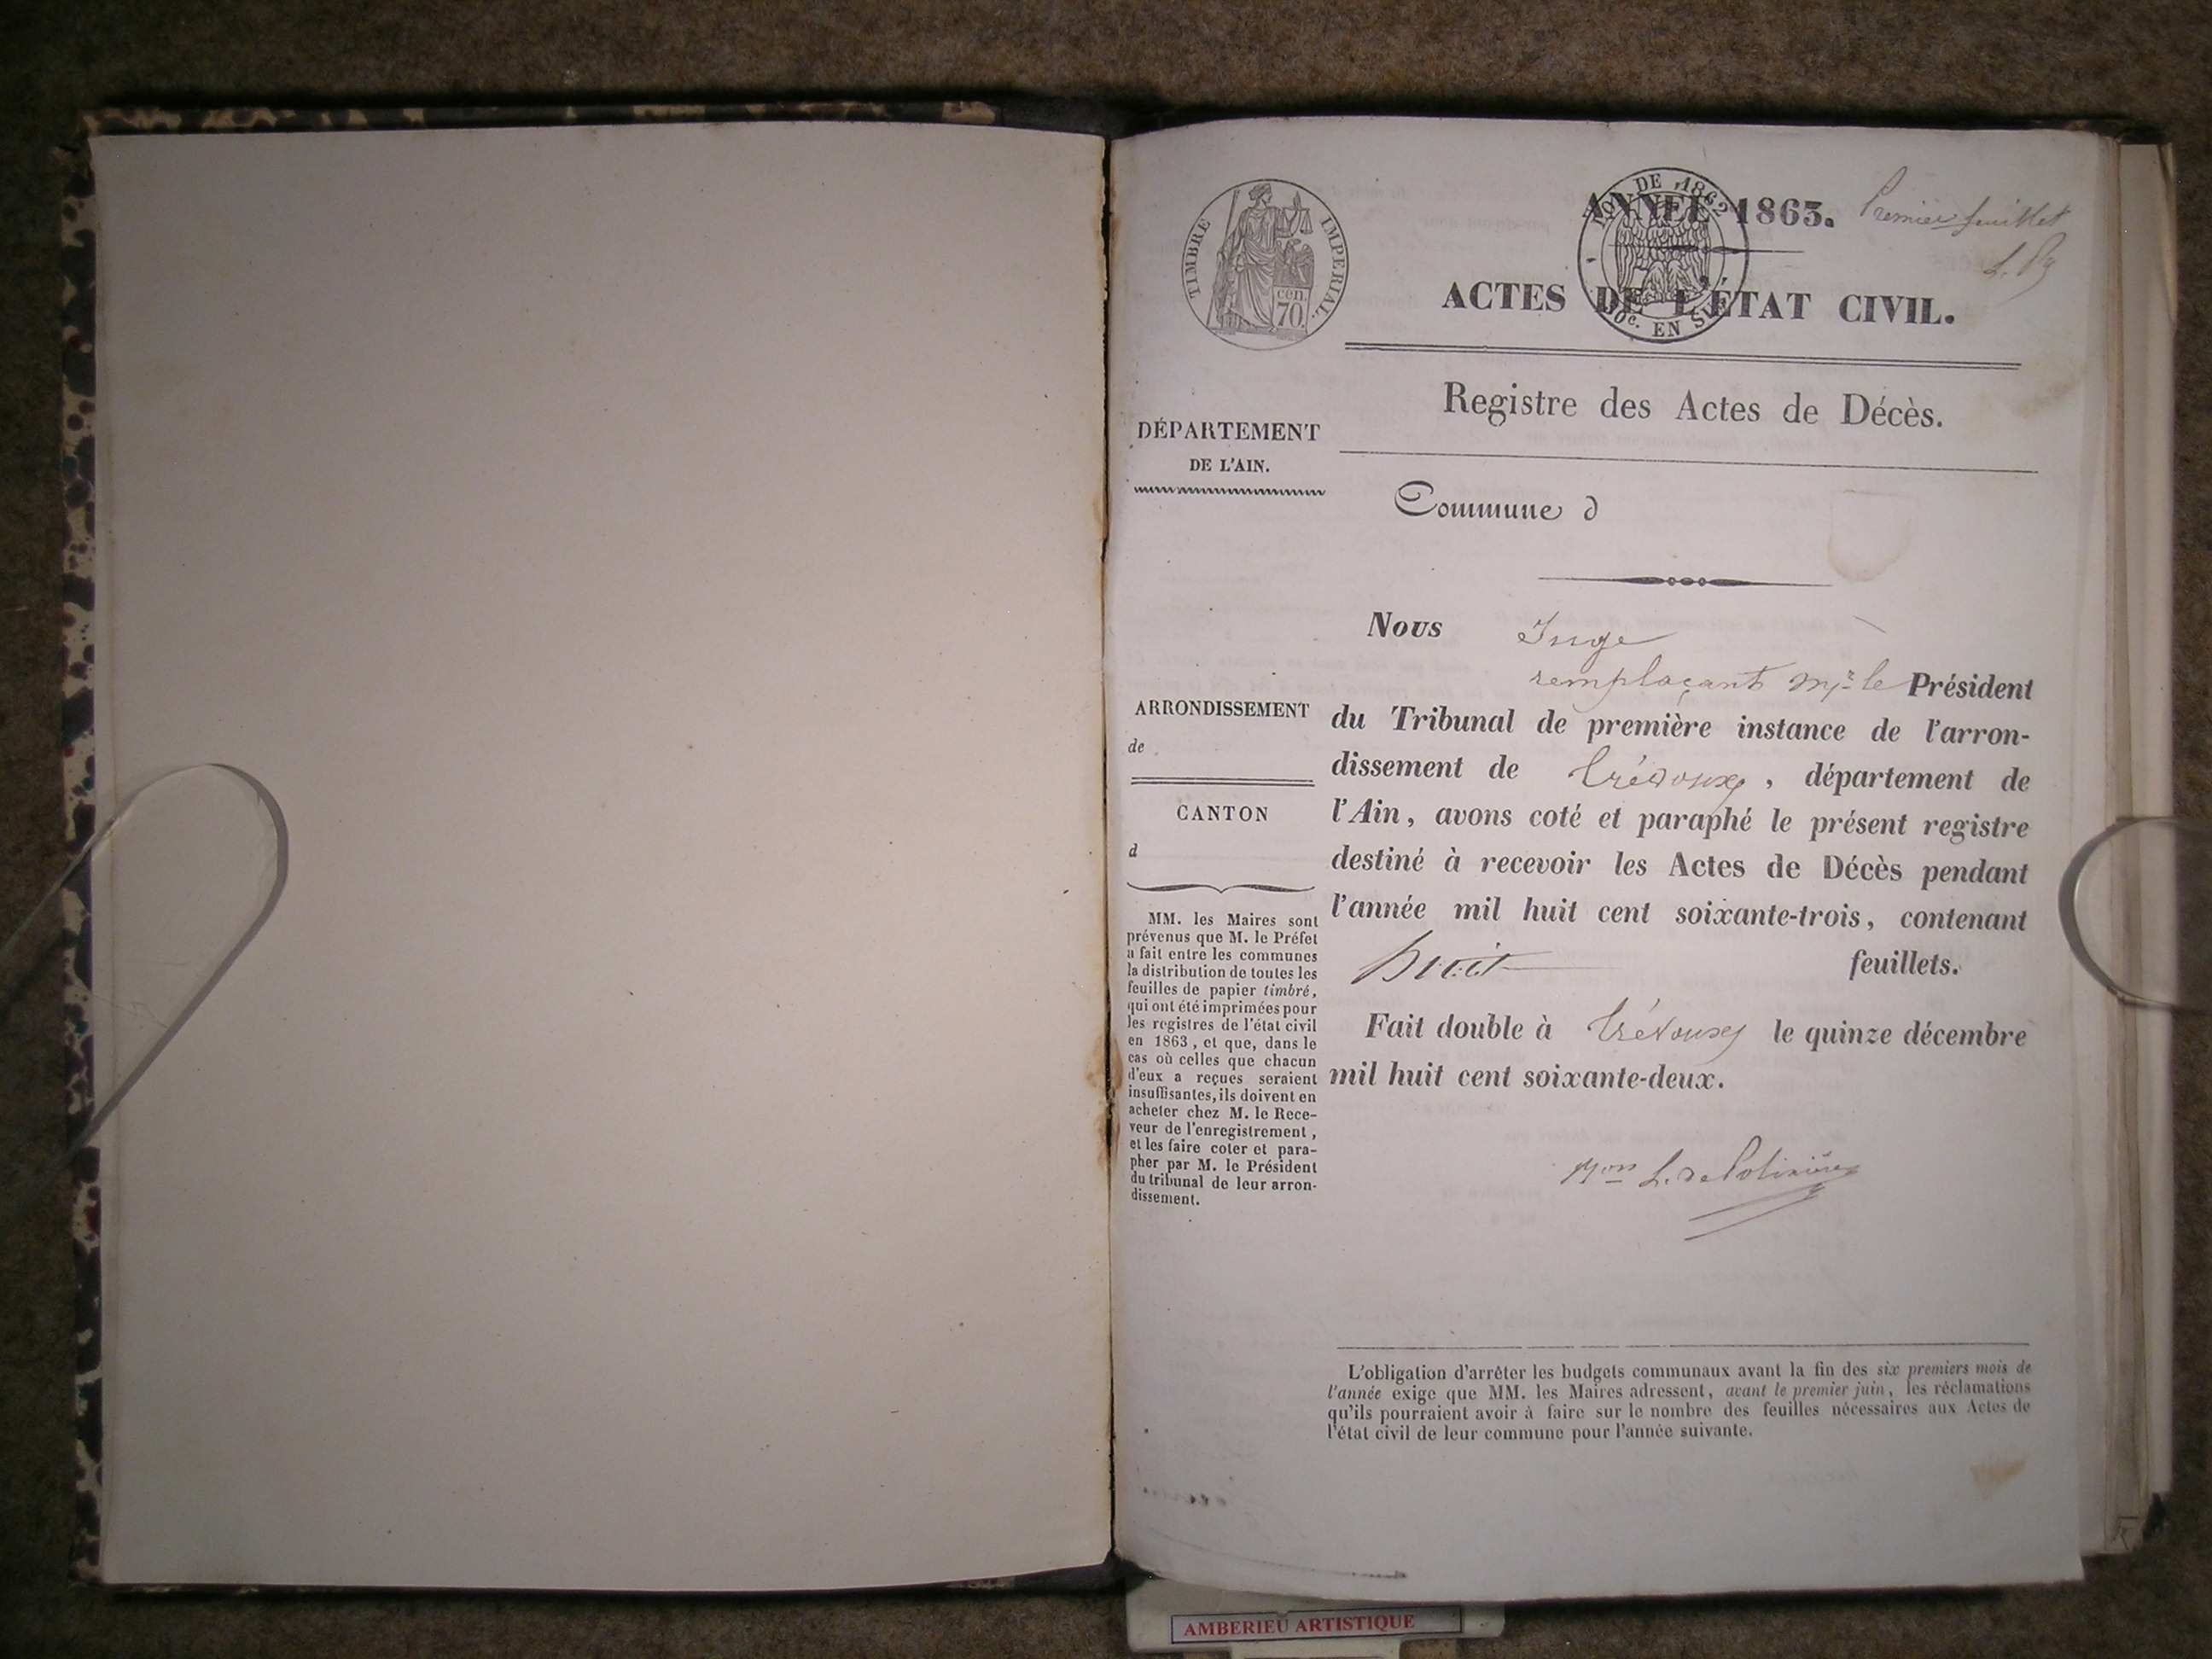 TIMBRE IMPERIAL.
cen.
70
LOI DE 1862
ANNÉE 1863.
Premier feuillet
ACTES DE L'ÉTAT CIVIL.
EN SUS
Registre des Actes de Décès.
DÉPARTEMENT
DE L'AIN.
Commune d
Nous Juge
remplaçant Mr le Président
du Tribunal de première instance de l'arron-
dissement de Trévoux, département de
l'Ain, avons coté et paraphé le présent registre
destiné à recevoir les Actes de Décès pendant
l'année mil huit cent soixante-trois, contenant
huit feuillets.
Fait double à Trévoux le quinze décembre
mil huit cent soixante-deux.
ARRONDISSEMENT
de
CANTON
d
MM. les Maires sont
prévenus que M. le Préfet
a fait entre les communes
la distribution de toutes les
feuilles de papier timbré,
qui ont été imprimées pour
les registres de l'état civil
en 1863, et que, dans le
cas où celles que chacun
d'eux a reçues seraient
insuffisantes, ils doivent en
acheter chez M. le Rece-
veur de l'enregistrement,
et les faire coter et para-
pher par M. le Président
du tribunal de leur arron-
dissement.
L'obligation d'arrêter les budgets communaux avant la fin des six premiers mois de
l'année exige que MM. les Maires adressent, avant le premier juin, les réclamations
qu'ils pourraient avoir à faire sur le nombre des feuilles nécessaires aux Actes de
l'état civil de leur commune pour l'année suivante.
AMBERIEU ARTISTIQUE